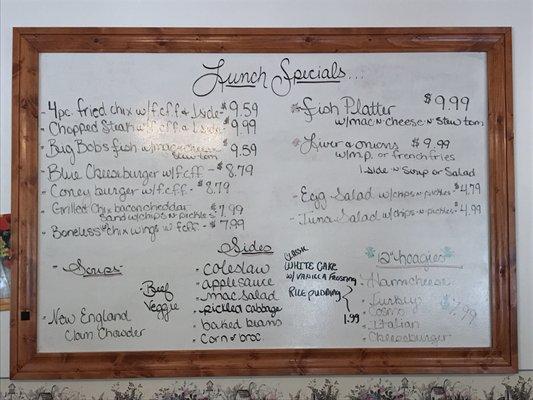 Lunch Specials...
- 4pc. fried chix w/f.c.f.f & 1 side - $9.59
- Chopped Steak w/f.c.f.f & 1 side - $9.99
- Bug Bob's fish w/mac n cheese n stew tom $9.59
- Blue Cheesburger w/f.c.f.f - $8.79
- Coney burger w/f.c.f.f. - $8.79
- Grilled Chix bacon cheddar
Sand w/chips n pickles $7.99
- Boneless chix wings w/ f.c.f.f - $7.99
Fish Platter $9.99
w/mac n cheese n stew tom
Liver & onions $9.99
w/m.p. or french fries
1 side n soup or salad
- Egg Salad w/chips n pickles - $4.79
- Tuna Salad w/chips n pickles - $4.99
- Soups -
Beef
Veggie
New England
Clam Chowder
Sides
- coleslaw
- applesauce
- mac salad
- pickled cabbage
- baked beans
- corn & broc.
Classic
White Cake
w/ Vanilla Frosting
Rice Pudding
1.99
12" hoagies
- Ham n cheese
- turkey
- Cosmo
- Italian
- Cheeseburger
$7.99